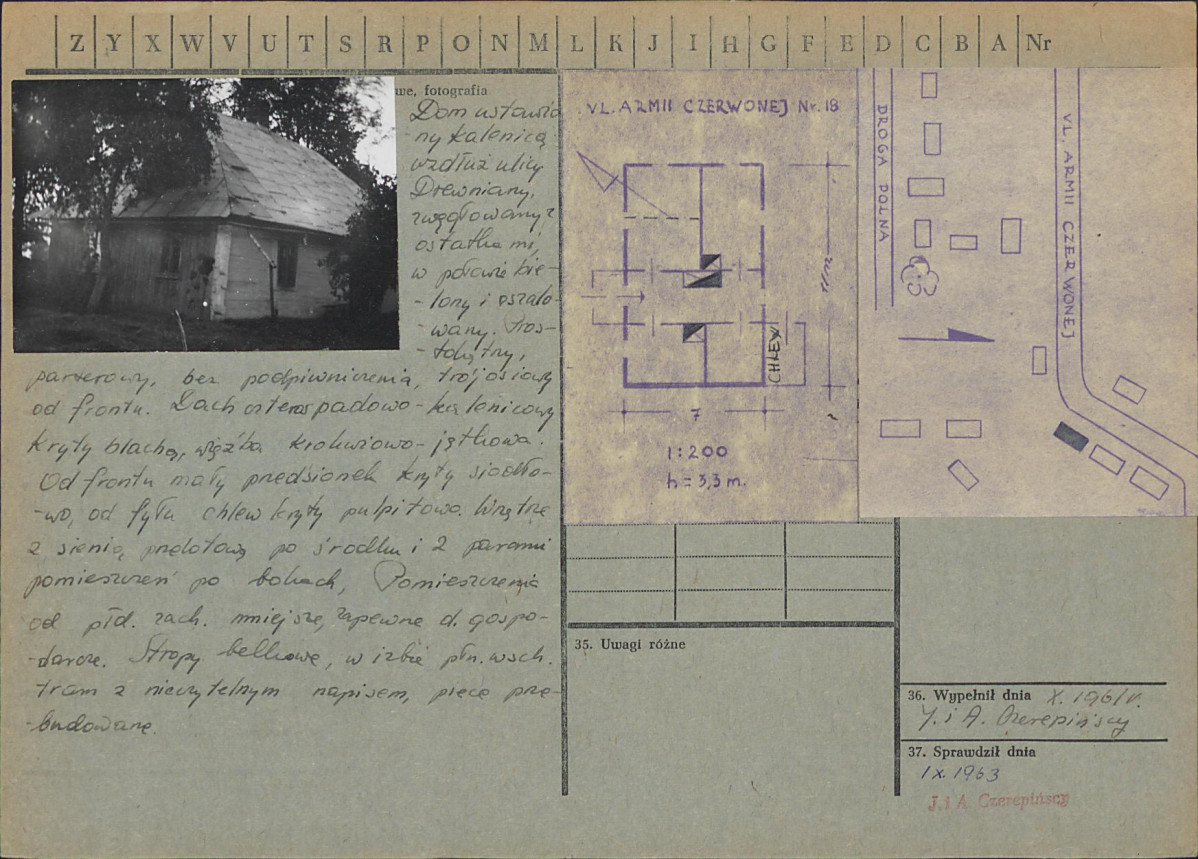 Z Y X W V U T S R P O N M L K J I H G F E D C B A Nr
we, fotografia
Dom ustawio
ny kalenicą
wzdłuż ulicy
Drewniany,
zwęgłowany z
ostatkami,
w połowie bie-
-lony i oszalo-
-wany. Pros-
-tokątny,
parterowy, bez podpiwniczenia, trójosiowy
od frontu. Dach czterospadowo-kalenicowy
kryty blachą, więźba krokwiowo-jętkowa.
Od frontu mały przedsionek kryty siodło-
-wo, od tyłu chlew kryty pulpitowo. Wnętrze
z sienią przelotową po środku i 2 parami
pomieszczeń po bokach, Pomieszczenia
od płd. zach. mniejsze, zapewne d. gospo-
-darcze. Stropy belkowe, w izbie płn. wsch.
tram z nieczytelnym napisem, piece prze-
-budowane.
VL. ARMII CZERWONEJ Nr. 18
CHLEW
7
1:200
h = 3,3 m.
DROGA POLNA
VL. ARMII CZERWONEJ
35. Uwagi różne
36. Wypełnił dnia X. 1961 r.
J. i A. Czerepińscy
37. Sprawdził dnia
IX. 1963
J. i A. Czerepińscy